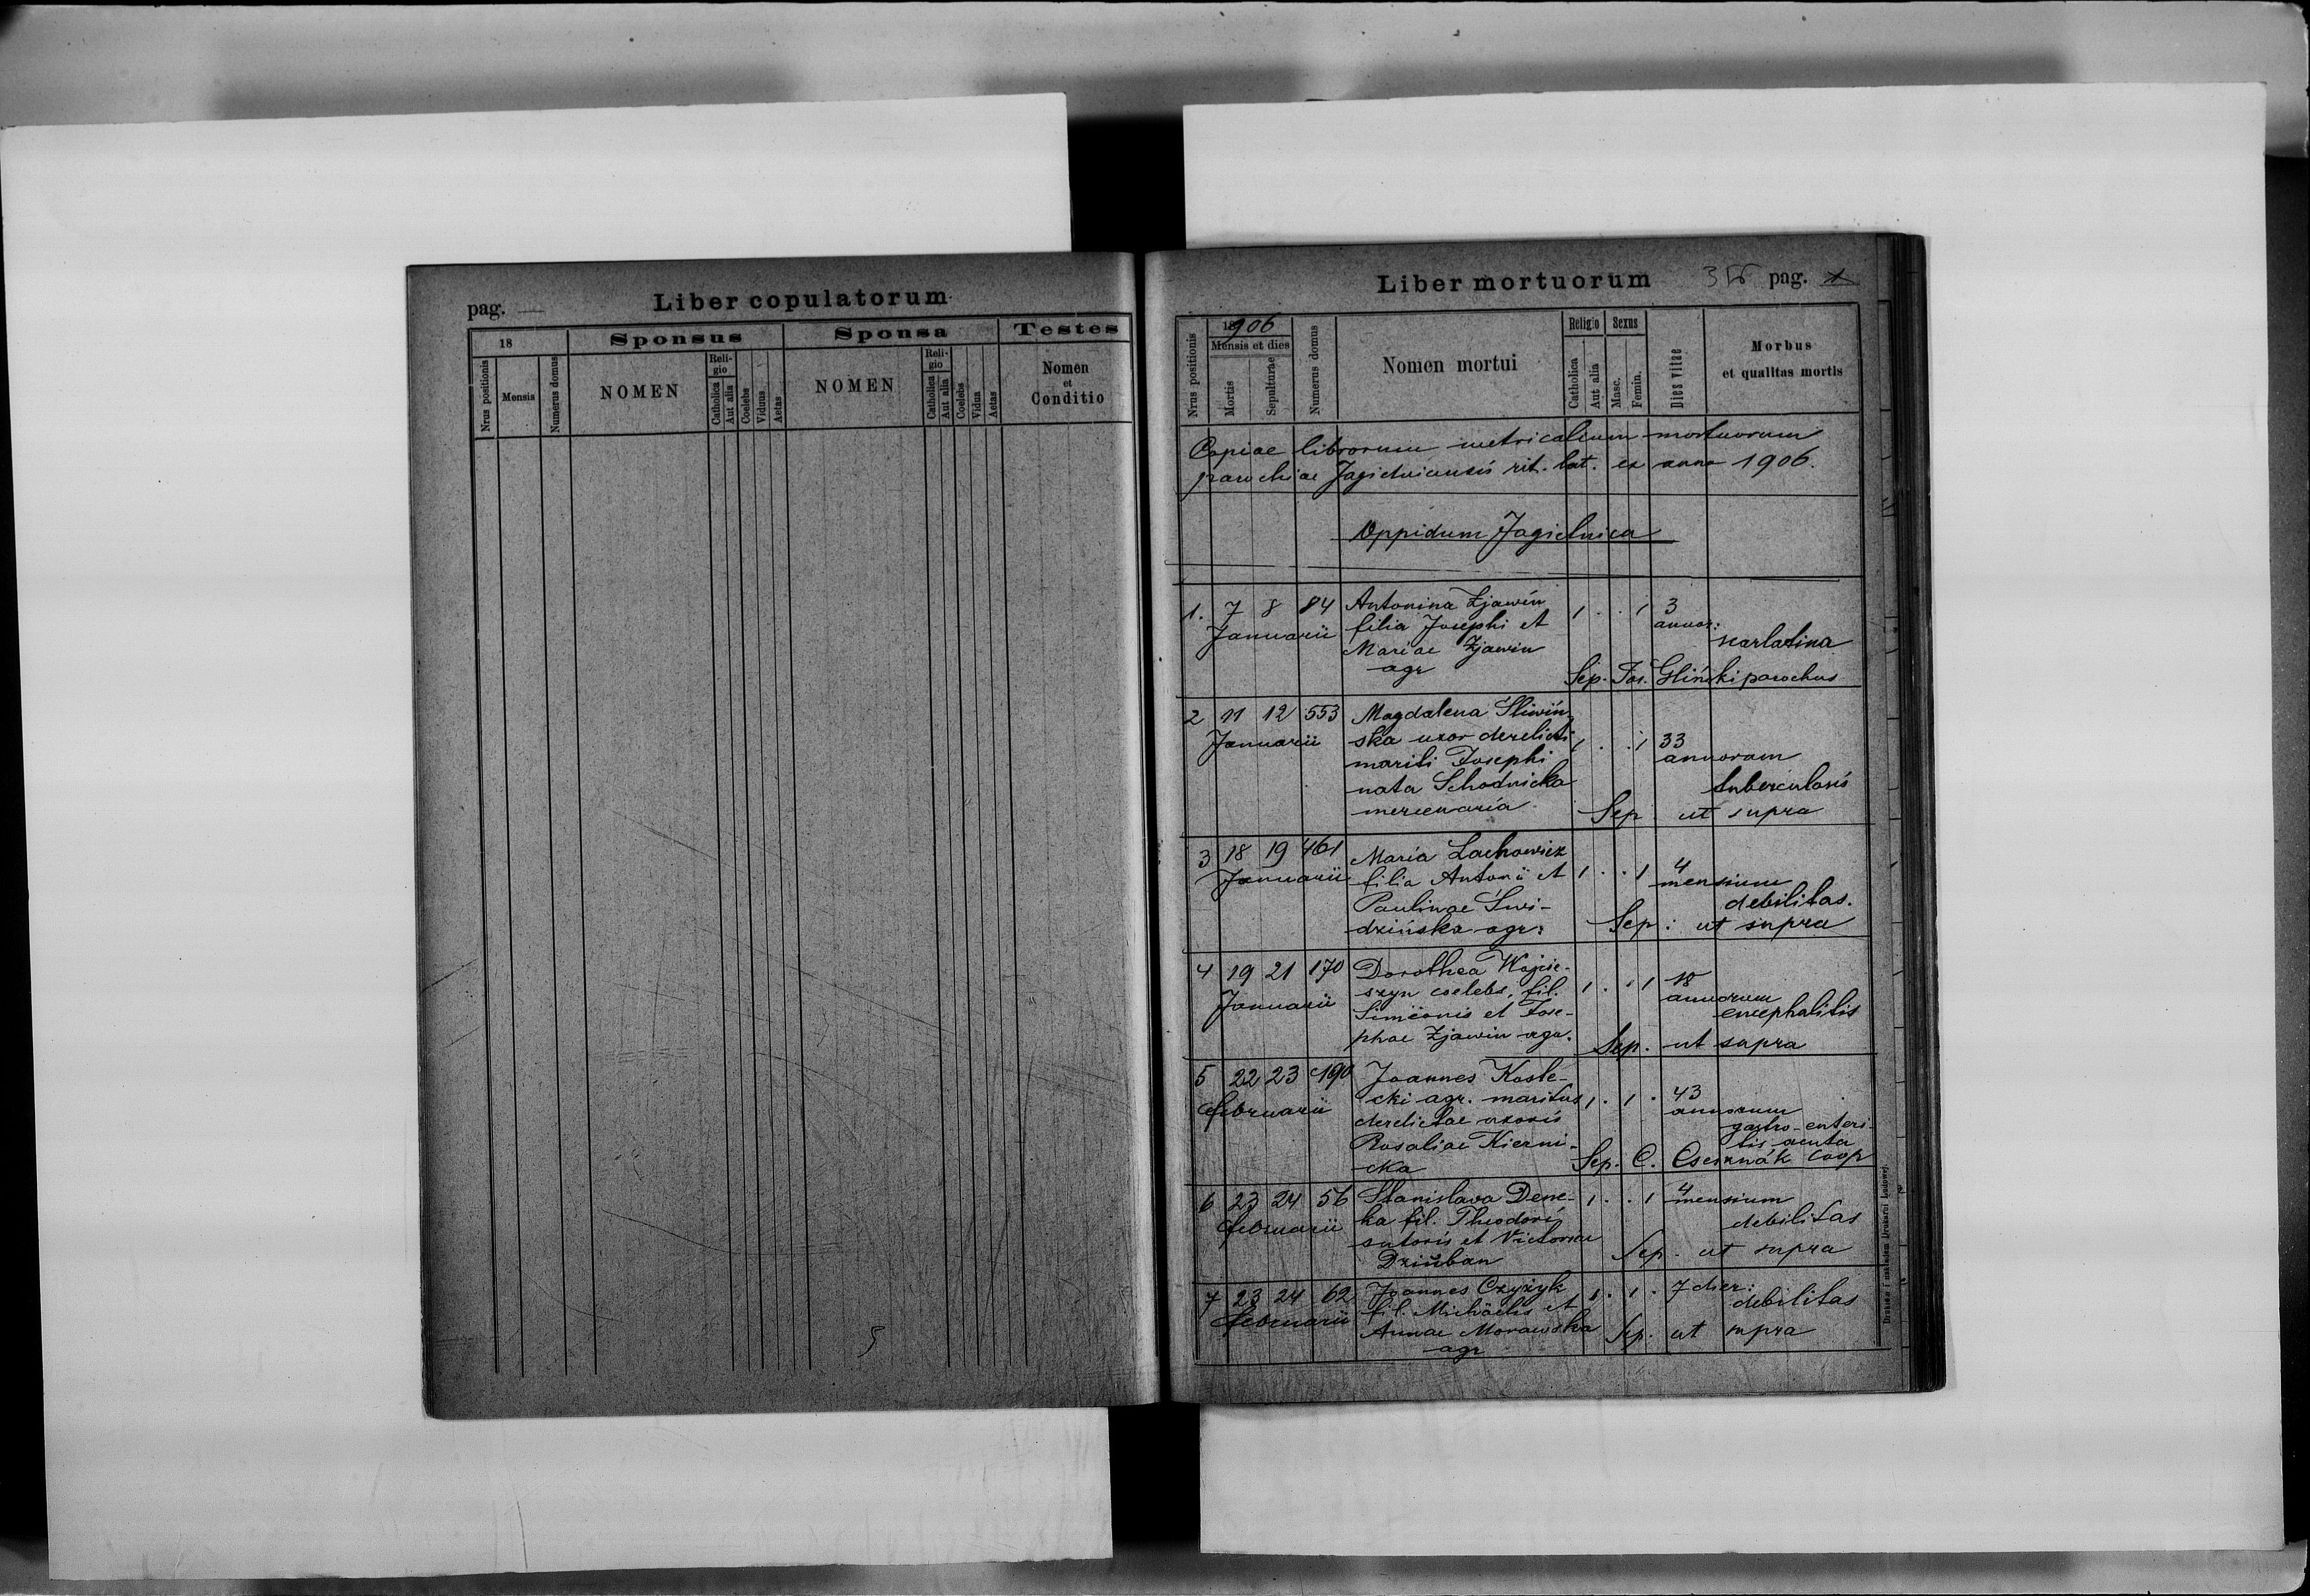 pag.
Liber copulatorum
18
Sponsus
Sponsa
Testes
Nrus positionis
Mensis
Numerus domus
NOMEN
Religio
Catholica
Aut alia
Coelebs
Viduus
Aetas
NOMEN
Religio
Catholica
Aut alia
Coelebs
Vidua
Aetas
Nomen
et
Conditio
Liber mortuorum
pag. 1
Nrus positionis
1906
Mensis et dies
Mortis
Sepulturae
Numerus domus
Nomen mortui
Religio
Catholica
Aut alia
Sexus
Masc.
Femin.
Dies vitae
Morbus
et qualitas mortis
Copiae librorum metricalium mortuorum
parochiae Jagielnicensis rit. lat. ex anno 1906.
Oppidum Jagielnica
1. 7 8 84 Antonina Zjawin 1 . . 1 3
Januarii filia Josephi et annor:
Mariae Zjawin scarlatina
agr Sep. Jos. Gliński parochus
2 11 12 553 Magdalena Śliwiń
Januarii ska uxor derelicti 1 . . 1 33
mariti Josephi annorum
nata Schodnicka tuberculosis
mercenaria Sep. ut supra
3 18 19 461 Maria Lachowicz
Januarii filia Antonii et 1 . . 1 4 mensium
Paulinae Świ- debilitas.
dzińska agr. Sep: ut supra
4 19 21 170 Dorothea Wojcie-
Januarii szyn coelebs, fil. 1 . . 1 18 annorum
Simeonis et Jose- encephalitis
phae Zjawin agr. Sep. ut supra
5 22 23 190 Joannes Koste-
Februarii cki agr. maritus 1 . 1 . 43 annorum
derelictae uxoris gastro-enteri-
Rosaliae Kierni- tis acuta
cka Sep. C. Csesznák coop
6 23 24 56 Stanislava Dene- 1 . . 1 4 mensium
Februarii ka fil. Theodori debilitas
sutoris et Victoriae
Dziuban Sep. ut supra
7 23 24 62 Joannes Czyżyk 1 . 1 . 7 dier:
Februarii fil. Michaelis et debilitas
Annae Morawska Sep. ut supra
agr
Drukiem i nakładem Drukarni Ludowej.